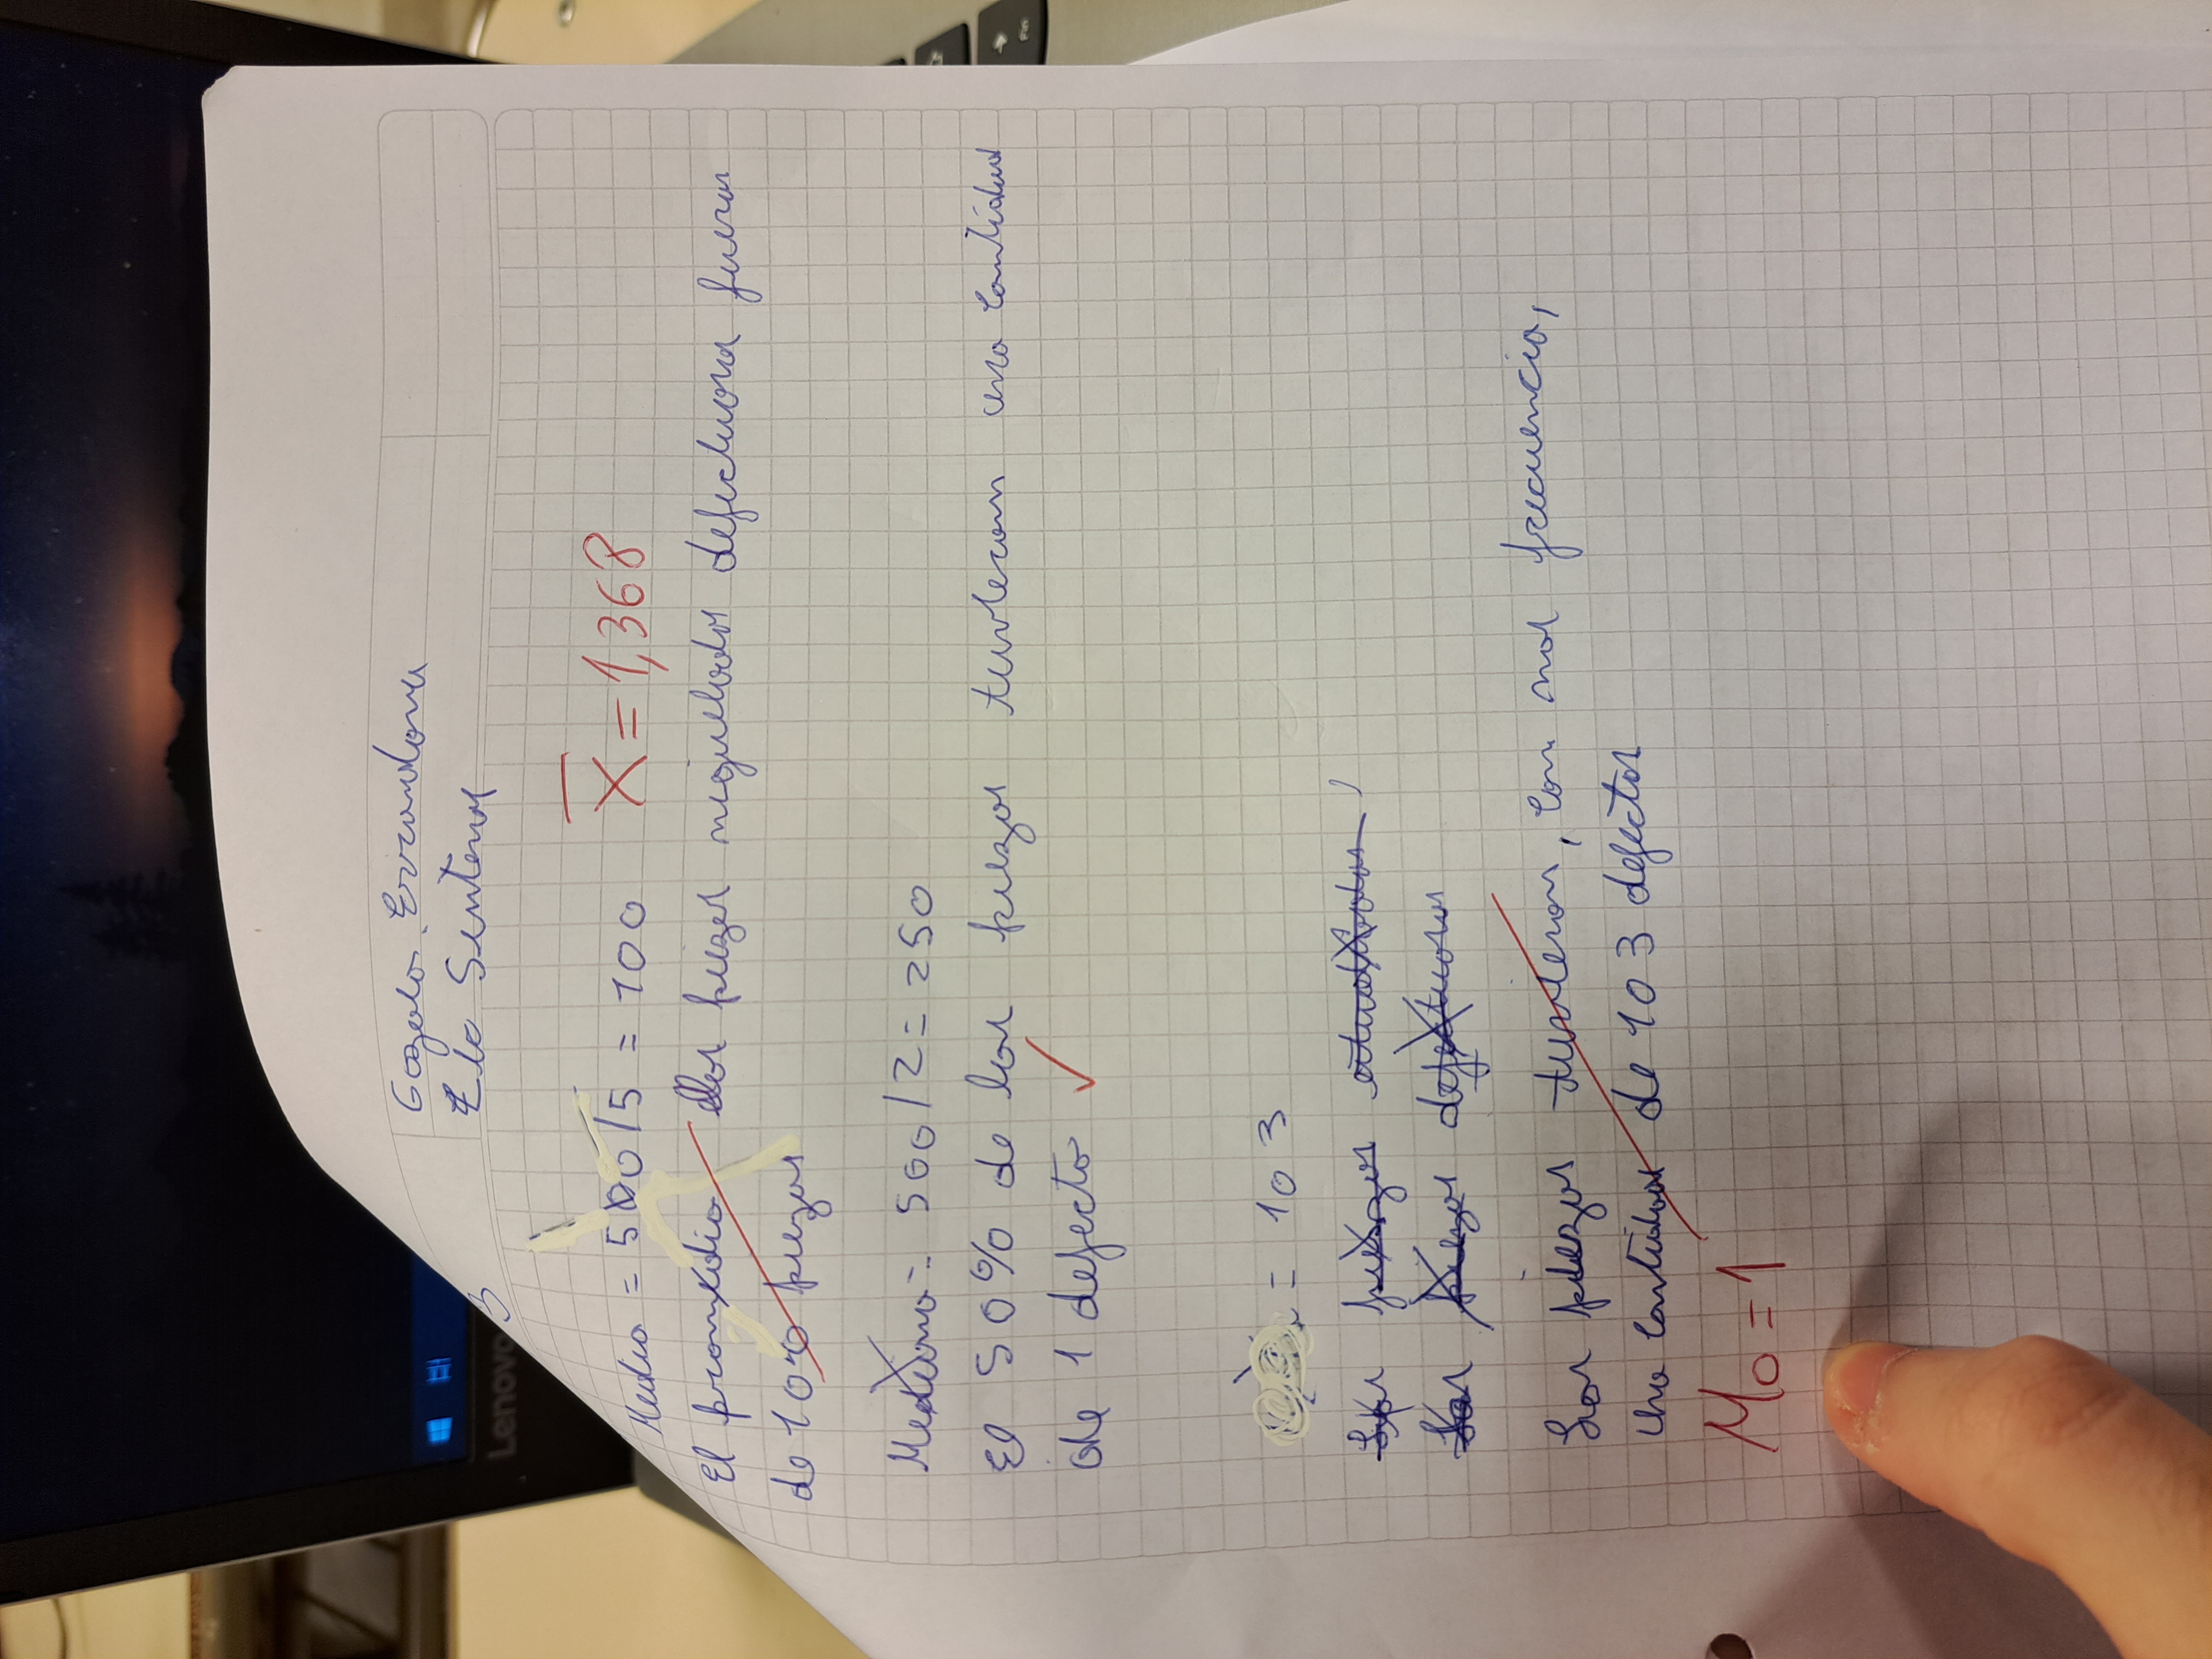 Lenovo
Gozalo. Errandona
Elo Sentena
3
Media = 500/5 = 100 X̅ = 1,368
El promedio de las piezas niqueladas defectuosa fueron
de 100 piezas
Mediana = 500/2 = 250
El 50% de las piezas tuvieron una cantidad
de 1 defecto ✓
= 103
Las piezas estudiadas
Las piezas defectuosas
Las piezas tuvieron, con mas frecuencia,
una cantidad de 103 defectos
Mo = 1
Fin